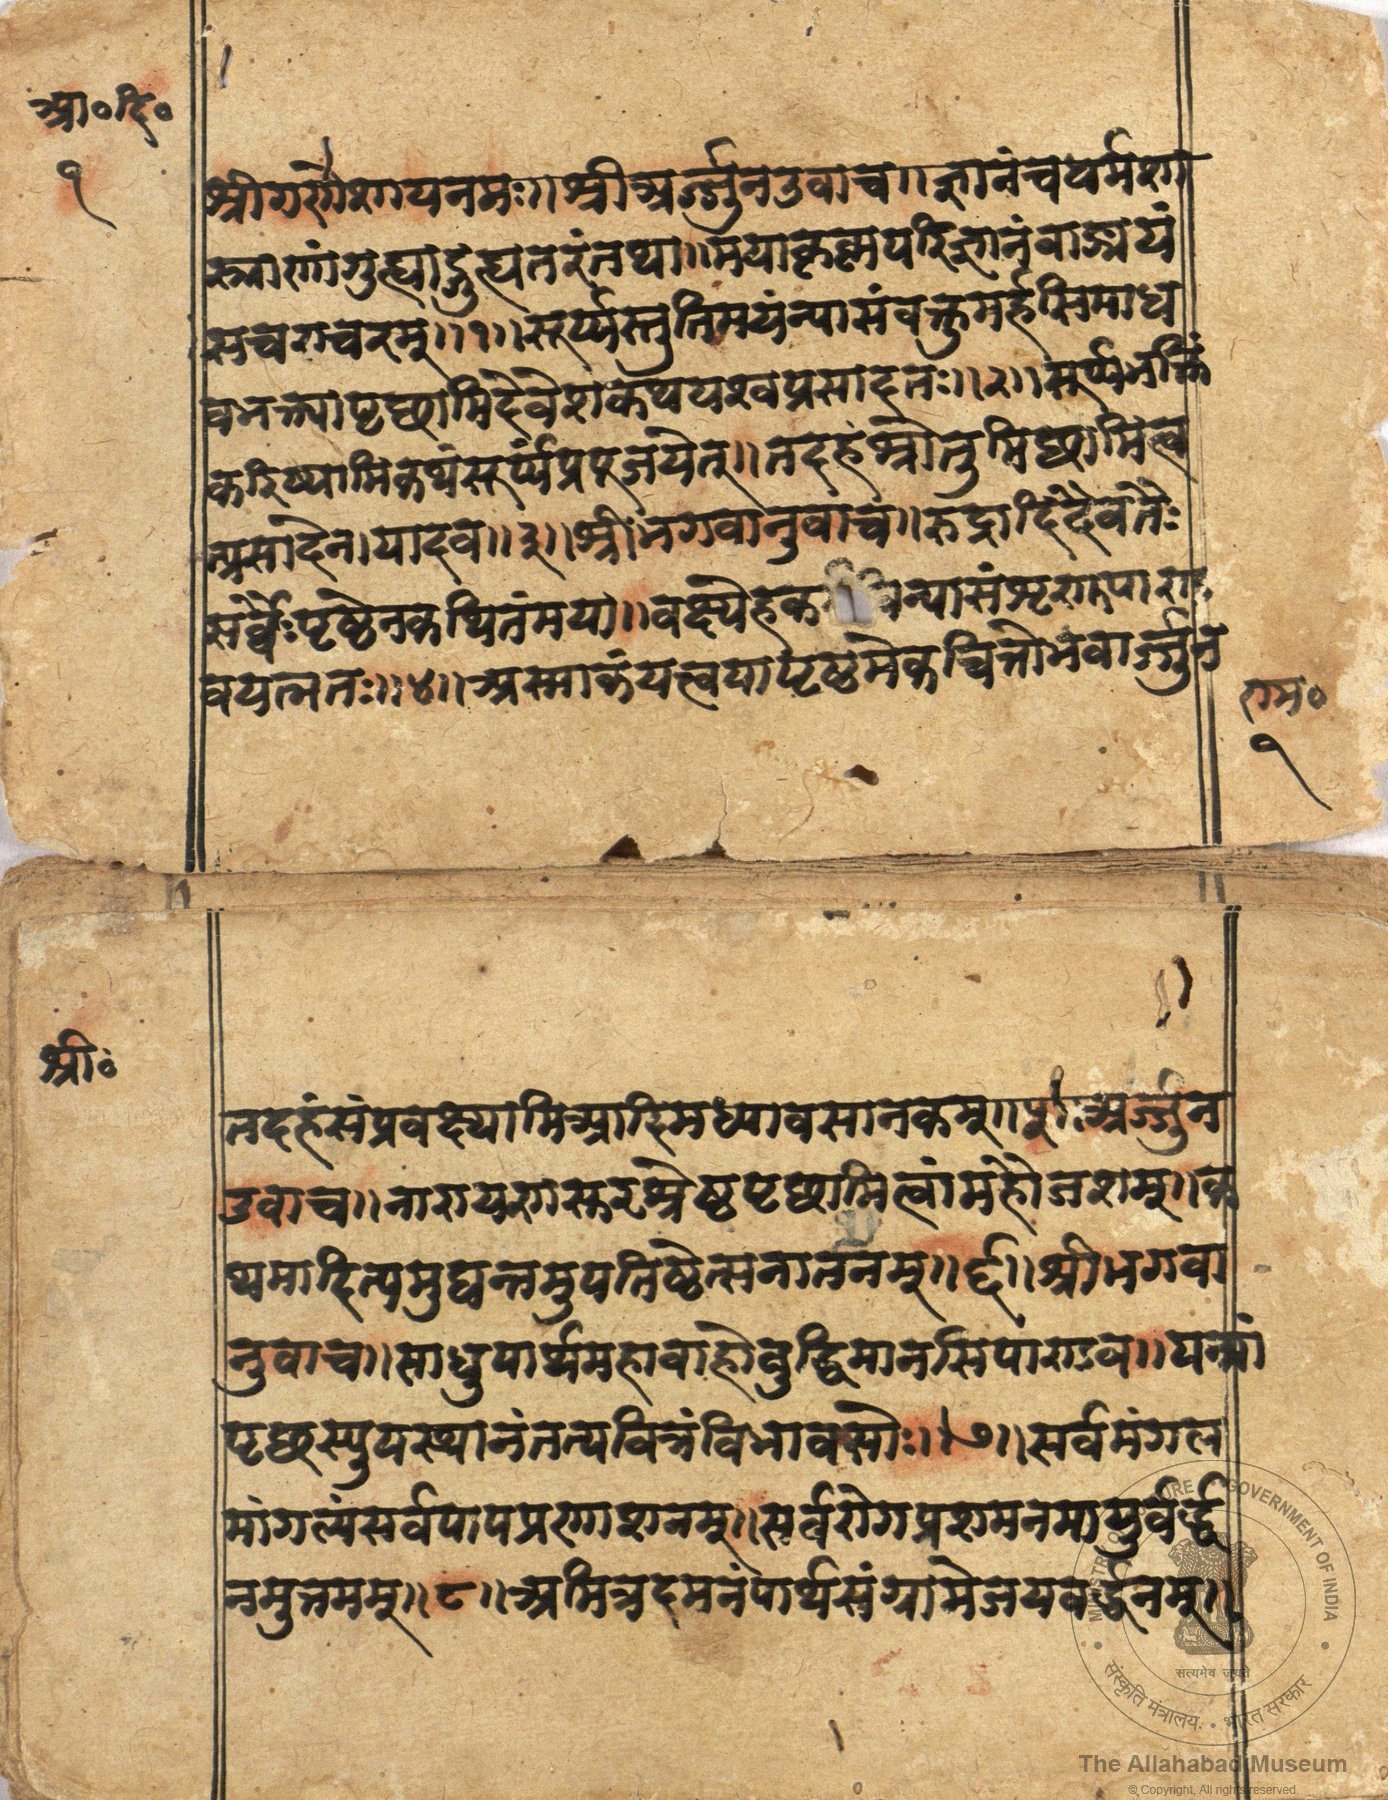 आ॰दि॰
१
श्रीगणेशायनमः॥श्रीअर्ज्जुनउवाच॥ज्ञानंचधर्मशा
स्त्राणांगुह्याद्गुह्यतरंतथा॥मयाकृष्णपरिज्ञातंवाङ्मयं
सचराचरम्॥१॥सूर्य्यस्तुतिमयंन्यासंवक्तुमर्हसिमाध
वभक्त्यापृछामिदेवेशकथयश्वप्रसादतः॥२॥सूर्य्यभक्तिं
करिष्यामिकथंसूर्य्यंप्रपूजयेत्॥तदहंश्रोतुमिछामित्व
त्प्रसादेनयादव॥३॥श्रीभगवानुवाच॥रुद्रादिदैवतैः
सर्वैःपृष्ठेनकथितंमया॥वक्ष्येहक न्यासंशृणुपाण्ड
वयत्नतः॥४॥अस्माकंयत्त्वयापृष्ठमेकचित्तोभवार्ज्जुन
राम॰
१
श्री॰
तदहंसंप्रवक्ष्यामिआदिमध्यावसानकम्॥५॥अर्ज्जुन
उवाच॥नारायणसुरश्रेष्ठपृछामित्वांमहौजशम्॥क
थमादित्यमुद्यन्तमुपतिष्ठेत्सनातनम्॥६॥श्रीभगवा
नुवाच॥साधुपार्थमहावाहोवुद्धिमानसिपांडव॥यन्मां
पृछस्युपस्थानंतत्पवित्रंविभावसोः॥७॥सर्वमंगल
मांगल्यंसर्वपापप्रणाशनम्॥सर्वरोगप्रशमनमायुर्वर्द्ध
नमुत्तमम्॥८॥अमित्रदमनंपार्थसंग्रामेजयवर्द्धनम्॥
MINISTRY OF CULTURE • GOVERNMENT OF INDIA
सत्यमेव जयते
संस्कृति मंत्रालय • भारत सरकार
The Allahabad Museum
© Copyright, All rights reserved.